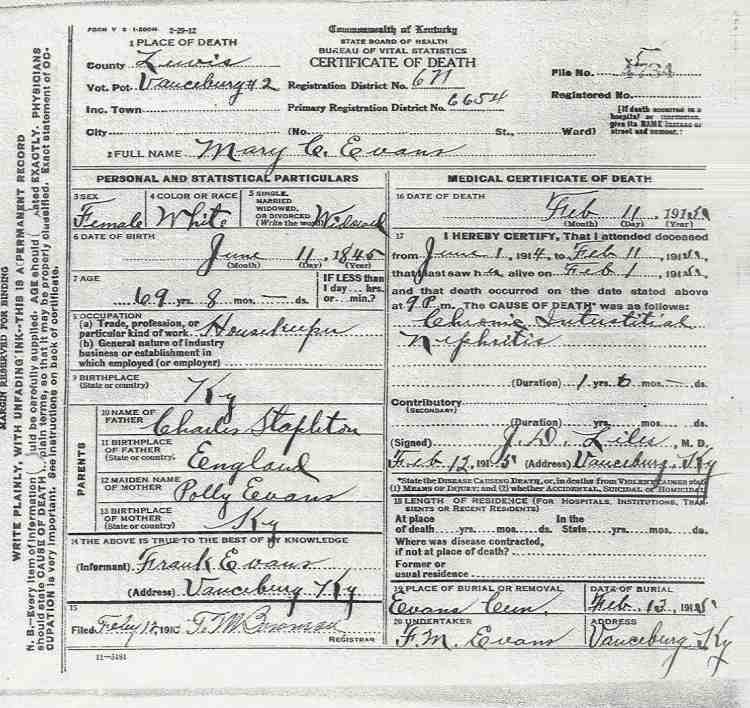 FORM V S 1-500M 2-29-12
Commonwealth of Kentucky
STATE BOARD OF HEALTH
BUREAU OF VITAL STATISTICS
CERTIFICATE OF DEATH
1 PLACE OF DEATH
County Lewis
Vot. Pct. Vanceburg #2
Inc. Town
City
Registration District No. 671
Primary Registration District No. 6654
(No. St., Ward)
File No. 4734
Registered No.
[If death occurred in a
hospital or institution,
give its NAME instead of
street and number.]
2 FULL NAME Mary C. Evans
PERSONAL AND STATISTICAL PARTICULARS
3 SEX
Female
4 COLOR OR RACE
White
5 SINGLE,
MARRIED
WIDOWED,
OR DIVORCED
(Write the word) Widowed
6 DATE OF BIRTH
June 11, 1845
(Month) (Day) (Year)
7 AGE
69 yrs. 8 mos. — ds.
IF LESS than
1 day... hrs.
or... min.?
8 OCCUPATION
(a) Trade, profession, or
particular kind of work Housekeeper
(b) General nature of industry
business or establishment in
which employed (or employer)
9 BIRTHPLACE
(State or country) Ky
PARENTS
10 NAME OF
FATHER Charles Stapleton
11 BIRTHPLACE
OF FATHER
(State or country) England
12 MAIDEN NAME
OF MOTHER Polly Evans
13 BIRTHPLACE
OF MOTHER
(State or country) Ky
14 THE ABOVE IS TRUE TO THE BEST OF MY KNOWLEDGE
(Informant) Frank Evans
(Address) Vanceburg Ky
15
Filed Feby 12, 1915 T. M. Bowman
REGISTRAR
11-5181
MEDICAL CERTIFICATE OF DEATH
16 DATE OF DEATH
Feb 11, 1915
(Month) (Day) (Year)
17 I HEREBY CERTIFY, That I attended deceased
from June 1, 1914, to Feb 11, 1915,
that I last saw h alive on Feb 1, 1915,
and that death occurred on the date stated above
at 9 P.m. The CAUSE OF DEATH* was as follows:
Chronic Interstitial
Nephritis
(Duration) 1 yrs. 6 mos. — ds.
Contributory
(SECONDARY)
(Duration) yrs. mos. ds.
(Signed) J. D. Liles, M. D.
Feb 12, 1915 (Address) Vanceburg, Ky
*State the DISEASE CAUSING DEATH, or, in deaths from VIOLENT CAUSES state
(1) MEANS OF INJURY; and (2) whether ACCIDENTAL, SUICIDAL OR HOMICIDAL
18 LENGTH OF RESIDENCE (FOR HOSPITALS, INSTITUTIONS, TRAN-
SIENTS OR RECENT RESIDENTS)
At place
of death yrs. mos. ds.
In the
State yrs. mos. ds.
Where was disease contracted,
if not at place of death?
Former or
usual residence
19 PLACE OF BURIAL OR REMOVAL
Evans Cem.
DATE OF BURIAL
Feb. 13, 1915
20 UNDERTAKER
F. M. Evans
ADDRESS
Vanceburg Ky
MARGIN RESERVED FOR BINDING
WRITE PLAINLY, WITH UNFADING INK—THIS IS A PERMANENT RECORD
N. B.—Every item of information should be carefully supplied. AGE should stated EXACTLY. PHYSICIANS
should state CAUSE OF DEATH plain terms, so that it may be properly classified. Exact statement of OC-
CUPATION is very important. See instructions on back of certificate.